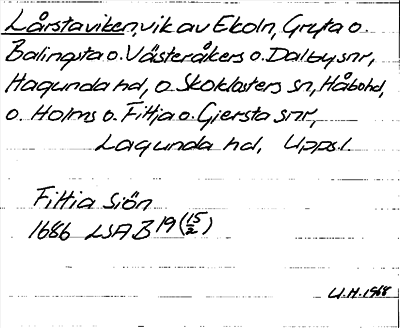 Lårstaviken, vik av Ekoln, Gryta o.
Balingsta o. Västeråkers o. Dalby snr,
Hagunda hd, o. Skoklosters sn, Håbo hd,
o. Holms o. Fittja o. Giersta snr,
Lagunda hd, Uppsl.
Fittia Siön
1686 LSA B 19 (15/2)
U.H. 1968